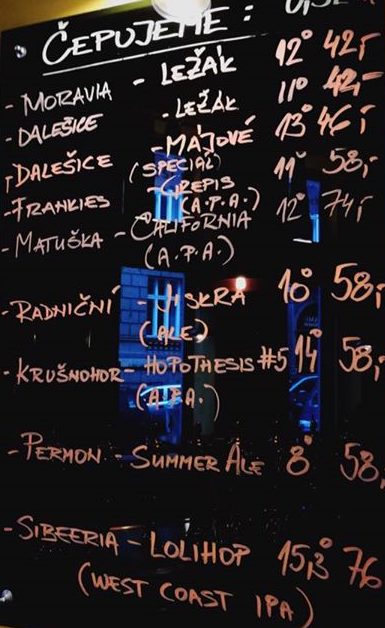 ČEPUJEME:
- MORAVIA - LEŽÁK 12° 42,-
- DALEŠICE - LEŽÁK 11° 42,-
- DALEŠICE - MÁJOVÉ 13° 46,-
(SPECIÁL)
- FRANKIES - GREPIS 11° 58,-
(A.P.A.)
- MATUŠKA - CALIFORNIA 12° 74,-
(A.P.A.)
- RADNIČNÍ - JISKRA 10° 58,-
(ALE)
- KRUŠNOHOR - HOPOTHESIS #5 14° 58,-
(A.P.A.)
- PERMON - SUMMER ALE 8° 58,
- SIBEERIA - LOLIHOP 15,3° 76
(WEST COAST IPA)